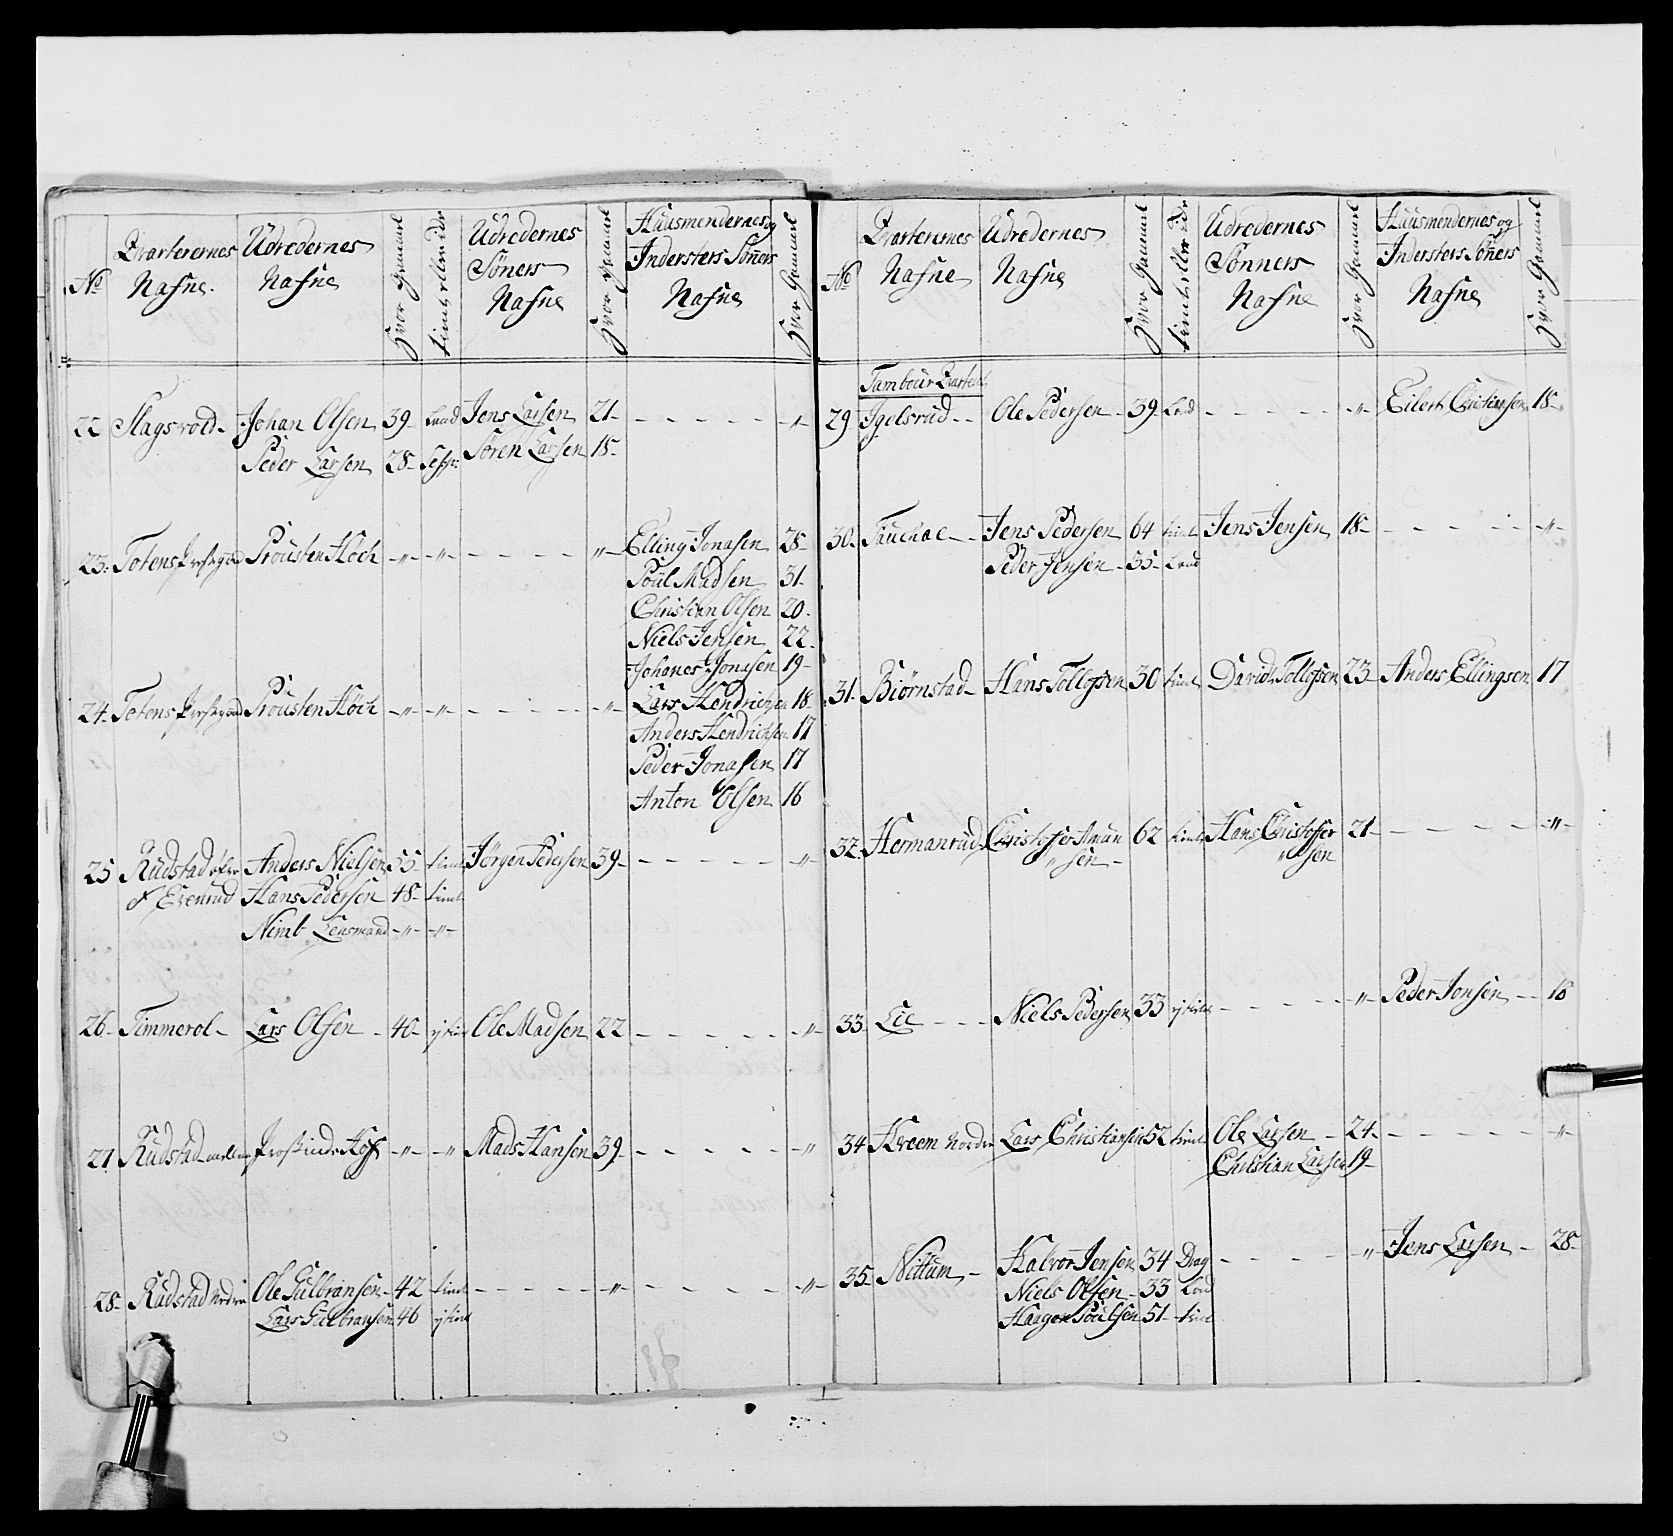 No
Qvarterernes Nafne.
Udredernes Nafne
Hvor Gammel
Udredernes Söners Nafne
Hvor Gammel
Huusmendernes og Inderster Söners Nafne
Hvor Gammel
22 Slagsvold - Johan Olsen 39 - Land Jens Larsen 21 - - - - - - „ -
Peder Larsen 28 - Sören Larsen 18 -
23. Totens Præstegaard Prousten Höch - „ - „ - - - - - „ - Elling Jonasen 28 -
Poul Madsen 31 -
Christian Olsen 20 -
Niels Jensen 22 -
Johanes Jonasen 19 -
24. Totens Præstegaard Prousten Höch - „ - „ - - - - - „ - Lars Hendrichsen 18 -
Anders Hendrichsen 17
Peder Jonasen 17
Anton Olsen 16
25 Rudstad öfre Anders Nielsen 55 - tient Jörgen Pedersen 39 - - - - - „
& Evenrud Hans Pedersen 48 - tient
Nimb Lensmand - „ - „ -
26 - Timmerol - Lars Olsen - 40 - ej tient Ole Madsen 22 - - - - - „ -
27 Rudstad mellem - „ - „ Mads Hansen 39 - - - - - „
28 - Rudstad Nordre Ole Gulbransen - 42 tient - - - - - „ - - - - - „ -
Lars Gulbransen 46 ej tient
No
Qvarterernes Nafne
Udredernes Nafne
Hvor Gammel
Udredernes Sönners Nafne
Hvor Gammel
Huusmendernes og Inderster Söners Nafne
Hvor Gammel
Tambour Qvarteer
29 Igelsrud - - Ole Pedersen - 39 - Land - - - - - „ - Eilert Christiansen 18 -
30 - Jens Pedersen 64 tient Jens Jensen 18 - - - - - „ -
Peder Jensen - 35 - Land
31. Biörnstad - Hans Tollofsen 30 tient David Tollofsen 23 - Anders Ellingsen 17
32. Hermanrud Christoffer Amun 62 tient Hans Christoffer 21 - - - - - „ -
„ sen - „ sen
33. Lie - - - Niels Pedersen 33 ej tient - - - - - „ - Peder Jonsen - - 16
34 Kreem Nordre Lars Christiansen 52 tient Ole Larsen - 24 - - - - - „ -
Christian Larsen 19 -
35 - Nittum - Halvor Jensen 34 Drag - - - - - „ Jens Larsen - 28 -
Niels Olsen - 33 Land
Haagen Poulsen 51 - tient